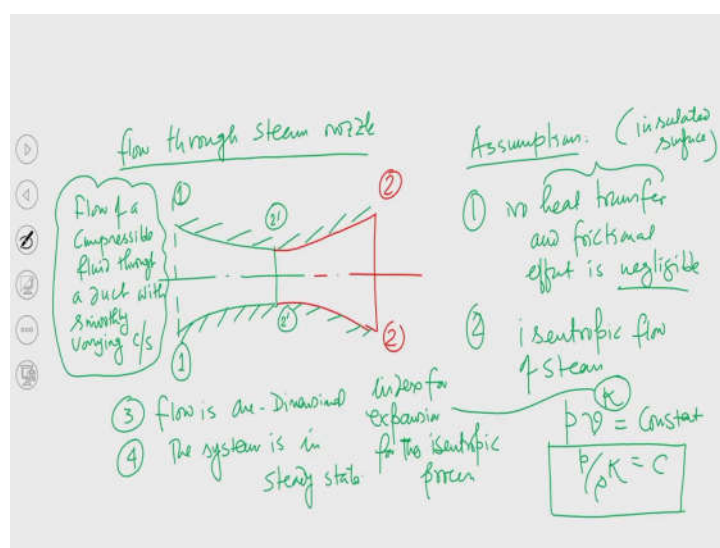 flow through steam nozzle
Flow of a
Compressible
fluid through
a duct with
smoothly
varying c/s
1
2'
2
1
2'
2
Assumption: (insulated
surface)
1 no heat transfer
and frictional
effect is negligible
2 isentropic flow
of steam
3 flow is one-Dimensional
4 The system is in
steady state
index for
expansion
for the isentropic
process
K
pv = Constant
p/ρK = C